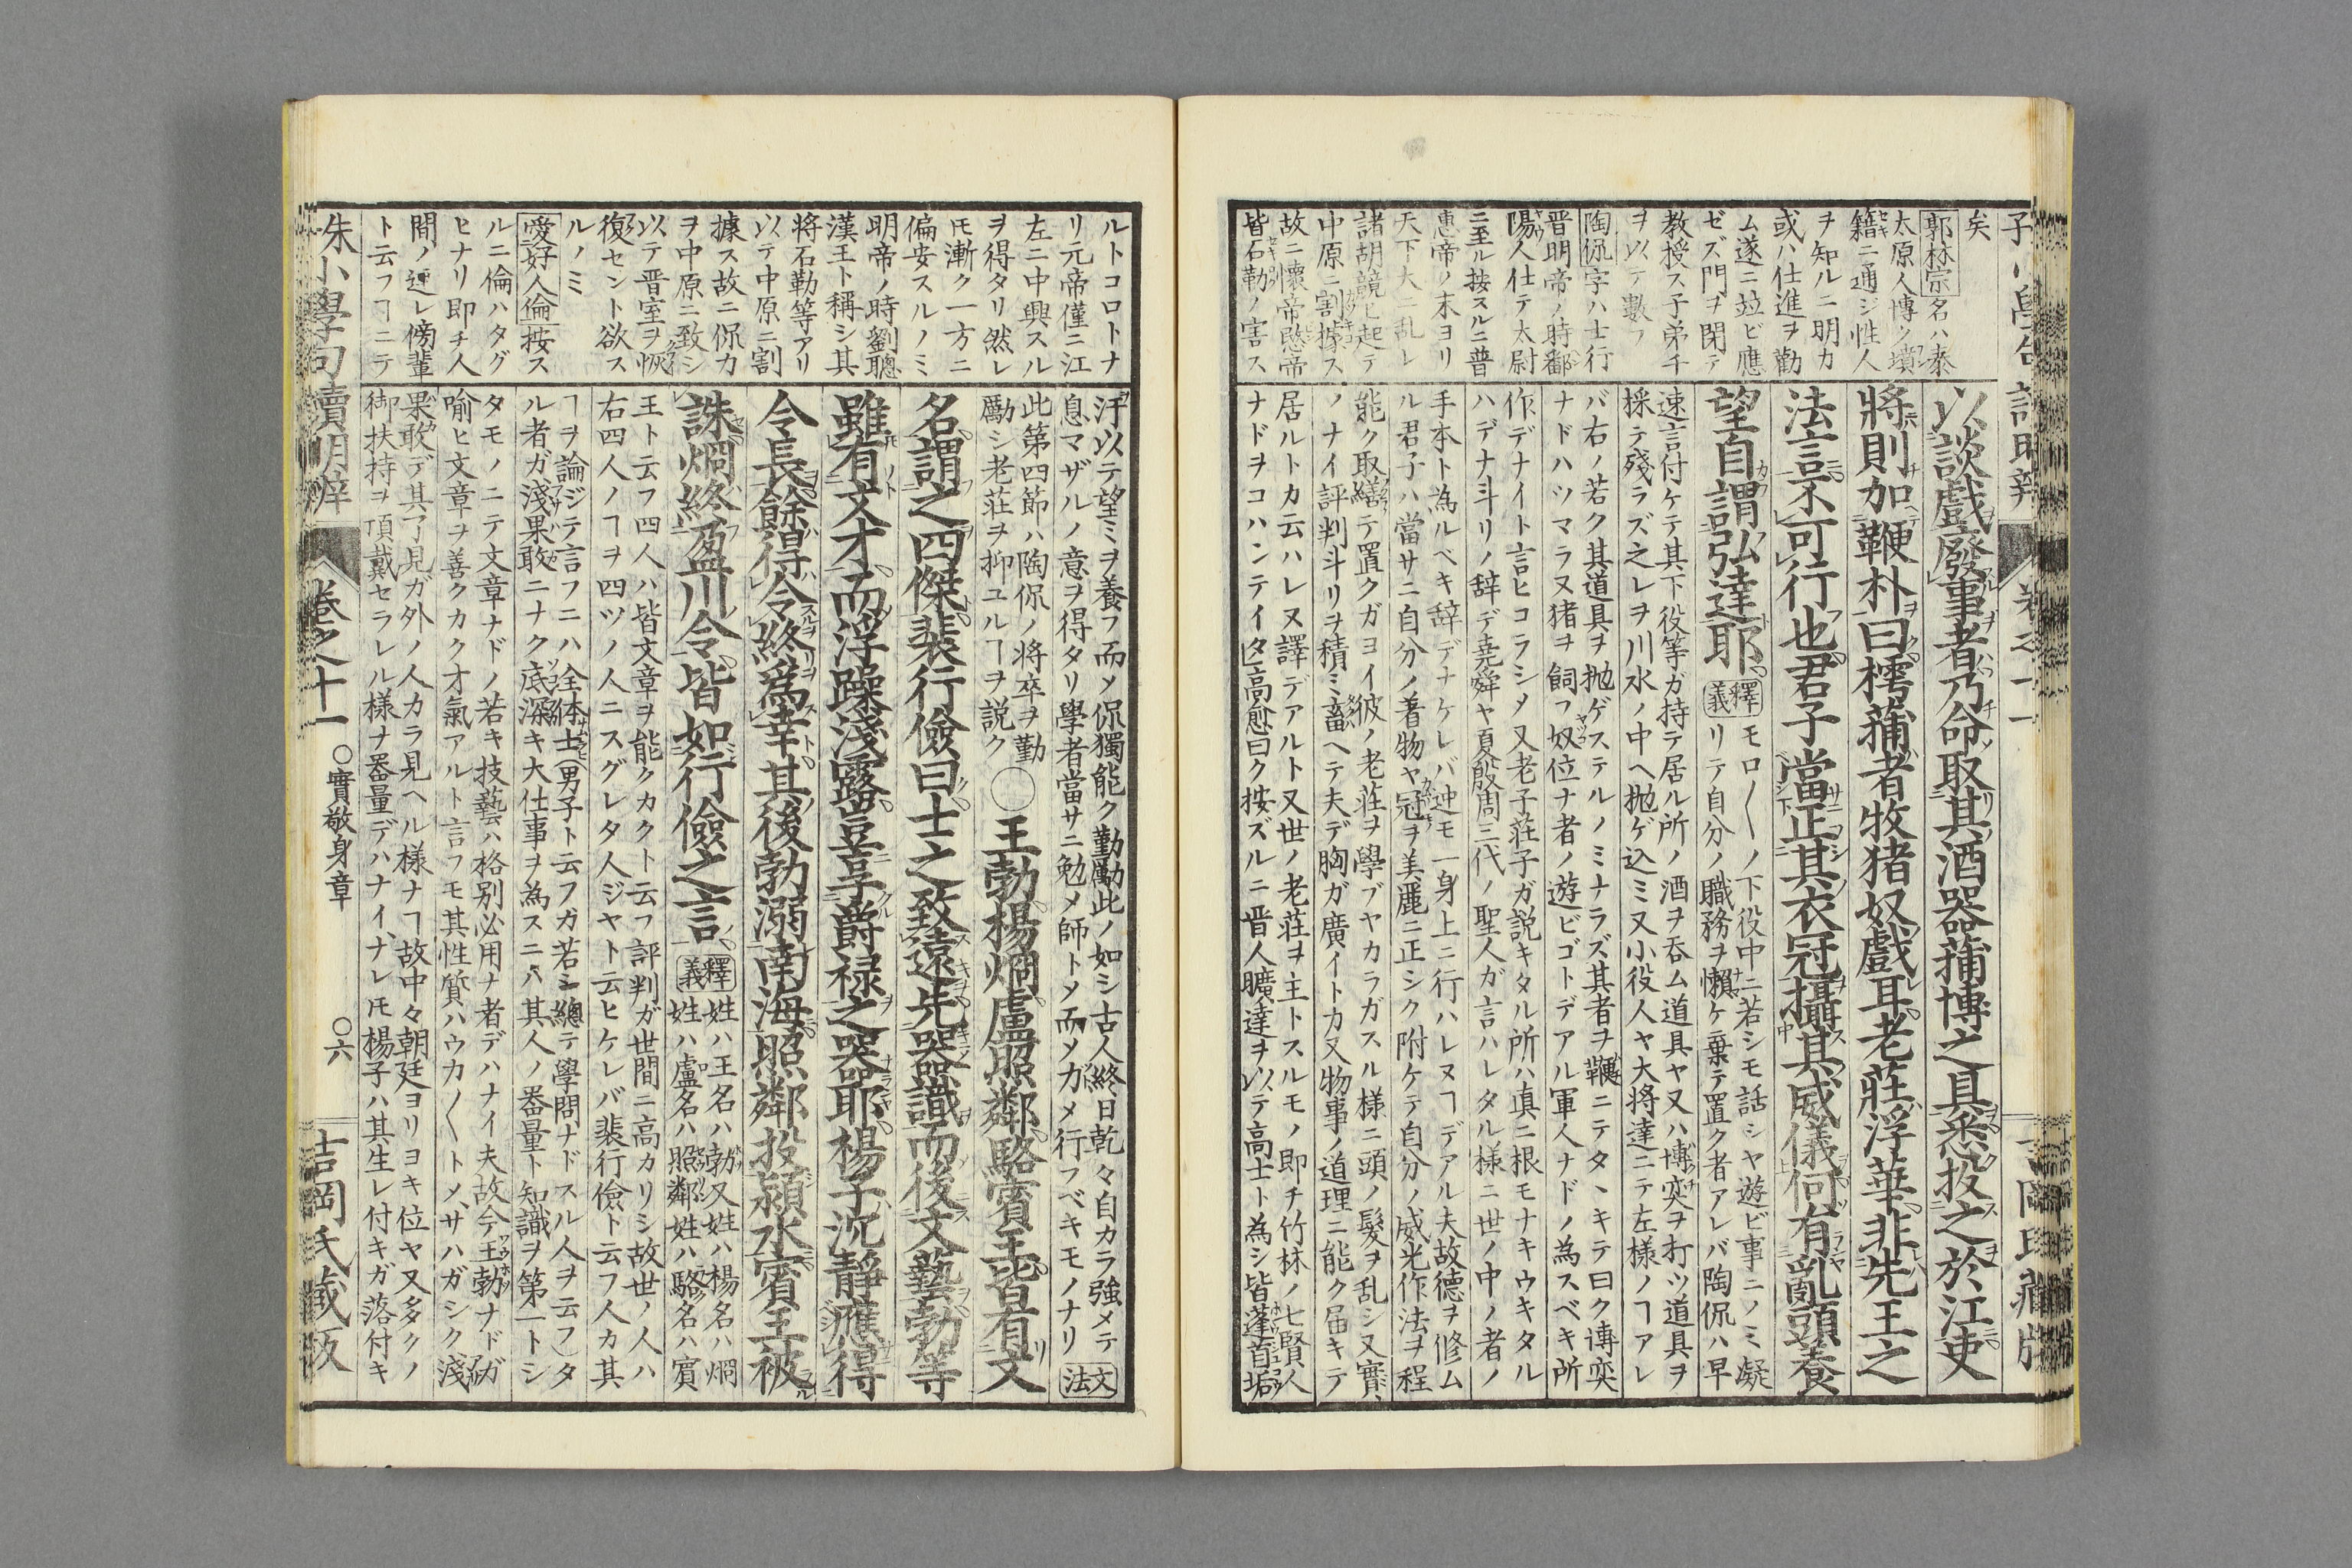 矣
郭林宗名ハ泰
太原人博ク墳
籍ニ通ジ性人
ヲ知ルニ明カ
或ハ仕進ヲ勸
ム遂ニ竝ビ應
ゼズ門ヲ閉テ
教授ス子弟千
ヲ以テ數フ
陶侃字ハ士行
晋明帝ノ時鄱
陽人仕テ太尉
ニ至ル按スルニ晋
惠帝ノ末ヨリ
天下大ニ乱レ
諸胡競ヒ起テ
中原ニ割據ス
故ニ懷帝愍帝
皆石勒ノ害ス
以談戲廢事者乃命取其酒器蒲博之具悉投之於江吏
將則加鞭朴曰樗蒲者牧猪奴戲耳老莊浮華非先王之
法言不可行也君子當正其衣冠攝其威儀何有亂頭養
望自謂弘達耶
釋義
モロ〱ノ下役中ニ若シモ話シヤ遊ビ事ニノミ凝
リテ自分ノ職務ヲ懶ケ棄テ置ク者アレバ陶侃ハ早
速言付ケテ其下役等ガ持テ居ル所ノ酒ヲ呑ム道具ヤ又ハ博奕ヲ打ツ道具ヲ
採テ殘ラズ之レヲ川水ノ中ヘ抛ゲ込ミ又小役人ヤ大将達ニテ左様ノヿアレ
バ右ノ若ク其道具ヲ抛ゲステルノミナラズ其者ヲ鞭ニテタヽキテ曰ク博奕
ナドハツマラヌ猪ヲ飼フ奴位ナ者ノ遊ビゴトデアル軍人ナドノ為スベキ所
作デナイト言ヒコラシメ又老子荘子ガ説キタル所ハ真ニ根モナキウキタル
ハデナ斗リノ辞デ堯舜ヤ夏殷周三代ノ聖人ガ言ハレタル様ニ世ノ中ノ者ノ
手本ト為ルベキ辞デナケレバ迚モ一身上ニ行ハレヌヿデアル夫故徳ヲ修ム
ル君子ハ當サニ自分ノ著物ヤ冠ヲ美麗ニ正シク附ケテ自分ノ威光作法ヲ程
能ク取繕テ置クガヨイ彼ノ老荘ヲ學ブヤカラガスル様ニ頭ノ髮ヲ乱シ又實、
ノナイ評判斗リヲ積ミ畜ヘテ夫デ胸ガ廣イトカ又物事ノ道理ニ能ク届キテ
居ルトカ云ハレヌ譯デアルト又世ノ老荘ヲ主トスルモノ即チ竹林ノ七賢人
ナドヲコハンテイタ高愈曰ク按ズルニ晋人曠達ヲ以テ高士ト為シ皆蓬首垢
ルトコロトナ
リ元帝僅ニ江
左ニ中興スル
ヲ得タリ然レ
𪜈漸ク一方ニ
偏安スルノミ
明帝ノ時劉聰
漢王ト稱シ其
将石勒等アリ
以テ中原ニ割
據ス故ニ侃力
ヲ中原ニ致シ
以テ晋室ヲ恢
復セント欲ス
ルノミ
愛好人倫按ス
ルニ倫ハタグ
ヒナリ即チ人
間ノ連レ傍輩
ト云フヿニテ
汙以テ望ミヲ養フ而メ侃獨能ク勤勵此ノ如シ古人終日乾々自カラ強メテ
息マザルノ意ヲ得タリ學者當サニ勉メ師トメ而メ力メ行フベキモノナリ
文法
此第四節ハ陶侃ノ将卒ヲ勤
勵シ老荘ヲ抑ユルヿヲ説ク
○王勃楊烱盧照鄰駱賓王皆有文
名謂之四傑裴行儉曰士之致遠先器識而後文藝勃等
雖有文才而浮躁淺露豈享爵祿之器耶楊子沉靜應得
令長餘得令終爲幸其後勃溺南海照鄰投潁水賓王被
誅烱終盈川令皆如行儉之言
釋義
姓ハ王名ハ勃又姓ハ楊名ハ烱
姓ハ盧名ハ照鄰姓ハ駱名ハ賓
王ト云フ四人ハ皆文章ヲ能クカクト云フ評判ガ世間ニ高カリシ故世ノ人ハ
右四人ノヿヲ四ツノ人ニスグレタ人ジヤト云ヒケレバ裴行儉ト云フ人カ其
ヿヲ論ジテ言フニハ全体士(男子ト云フガ若シ總テ學問ナドスル人ヲ云フ)タ
ル者ガ淺果敢ニナク底深キ大仕事ヲ為スニハ其人ノ器量ト知識ヲ第一トシ
タモノニテ文章ナドノ若キ技藝ハ格別必用ナ者デハナイ夫故今王勃ナドガ
喻ヒ文章ヲ善クカク才氣アルト言フモ其性質ハウカ〱トメ、サハガシク淺
果敢デ其了見ガ外ノ人カラ見ヘル様ナヿ故中々朝廷ヨリヨキ位ヤ又多クノ
御扶持ヲ頂戴セラレル様ナ器量デハナイ、ナレ𪜈楊子ハ其生レ付キガ落付キ
朱小學句讀明辨 卷之十一 ○實敬身章 ○六 吉岡氏藏版